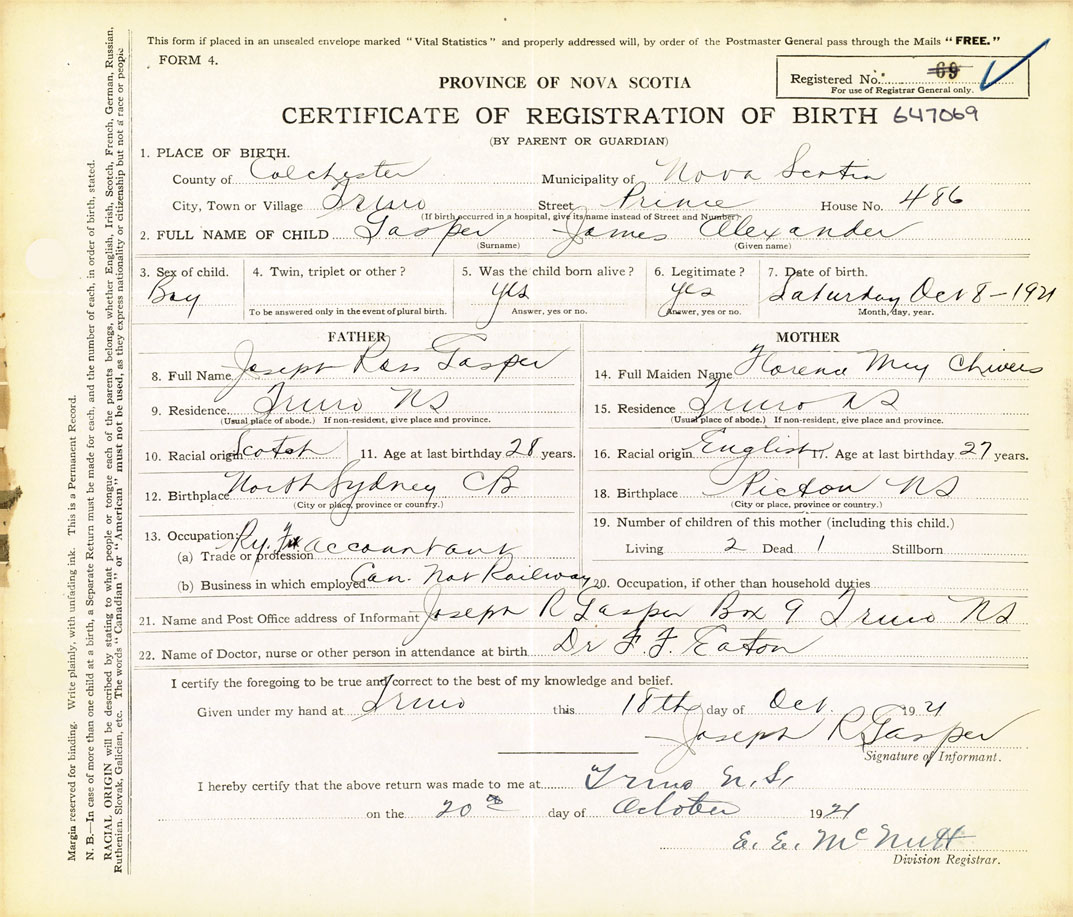 This form if placed in an unsealed envelope marked "Vital Statistics" and properly addressed will, by order of the Postmaster General pass through the Mails "FREE."
FORM 4.
Registered No. 69
For use of Registrar General only.
PROVINCE OF NOVA SCOTIA
CERTIFICATE OF REGISTRATION OF BIRTH 647069
(BY PARENT OR GUARDIAN)
1. PLACE OF BIRTH.
County of Colchester Municipality of Nova Scotia
City, Town or Village Truro Street Prince House No. 486
(If birth occurred in a hospital, give its name instead of Street and Number)
2. FULL NAME OF CHILD Gasper James Alexander
(Surname) (Given name)
3. Sex of child. 4. Twin, triplet or other? 5. Was the child born alive? 6. Legitimate? 7. Date of birth.
Boy yes yes Saturday Oct 8 - 1921
To be answered only in the event of plural birth. Answer, yes or no. Answer, yes or no. Month, day, year.
FATHER
8. Full Name Joseph Ross Gasper
9. Residence Truro NS
(Usual place of abode.) If non-resident, give place and province.
10. Racial origin Scotch 11. Age at last birthday 28 years.
12. Birthplace North Sydney CB
(City or place, province or country.)
13. Occupation:
(a) Trade or profession Ry. accountant
(b) Business in which employed Can. Nat Railway
MOTHER
14. Full Maiden Name Florena May Chivers
15. Residence Truro NS
(Usual place of abode.) If non-resident, give place and province.
16. Racial origin English 17. Age at last birthday 27 years.
18. Birthplace Pictou NS
(City or place, province or country.)
19. Number of children of this mother (including this child.)
Living 2 Dead 1 Stillborn
20. Occupation, if other than household duties
21. Name and Post Office address of Informant Joseph R Gasper Box 9 Truro NS
22. Name of Doctor, nurse or other person in attendance at birth Dr F. F. Eaton
I certify the foregoing to be true and correct to the best of my knowledge and belief.
Given under my hand at Truro this 18th day of Oct. 1921
Joseph R Gasper
Signature of Informant.
I hereby certify that the above return was made to me at Truro N.S.
on the 20th day of October 1921
E. E. McNutt
Division Registrar.
Margin reserved for binding. Write plainly, with unfading ink. This is a Permanent Record.
N. B.—In case of more than one child at a birth, a Separate Return must be made for each, and the number of each, in order of birth, stated.
RACIAL ORIGIN will be described by stating to what people or tongue each of the parents belongs, whether English, Irish, Scotch, French, German, Russian,
Ruthenian, Slovak, Galician, etc. The words "Canadian" or "American" must not be used, as they express nationality or citizenship but not a race or people